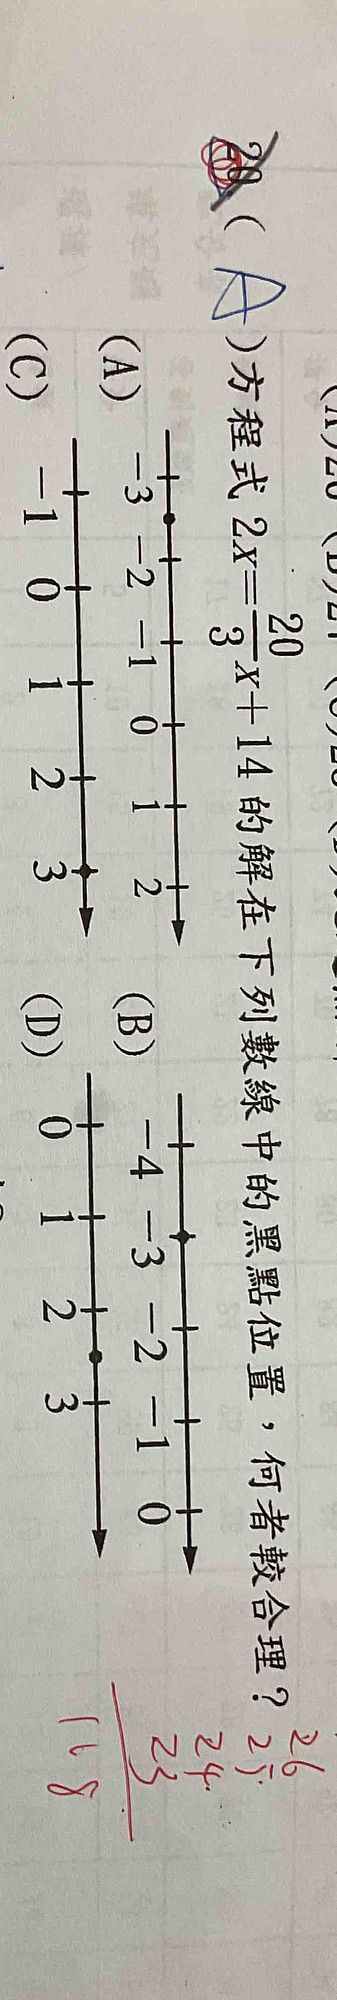 20.( A )方程式 2x=20/3x+14 的解在下列數線中的黑點位置,何者較合理?
(A) -3 -2 -1 0 1 2 (B) -4 -3 -2 -1 0
(C) -1 0 1 2 3 (D) 0 1 2 3
26
25
24
23